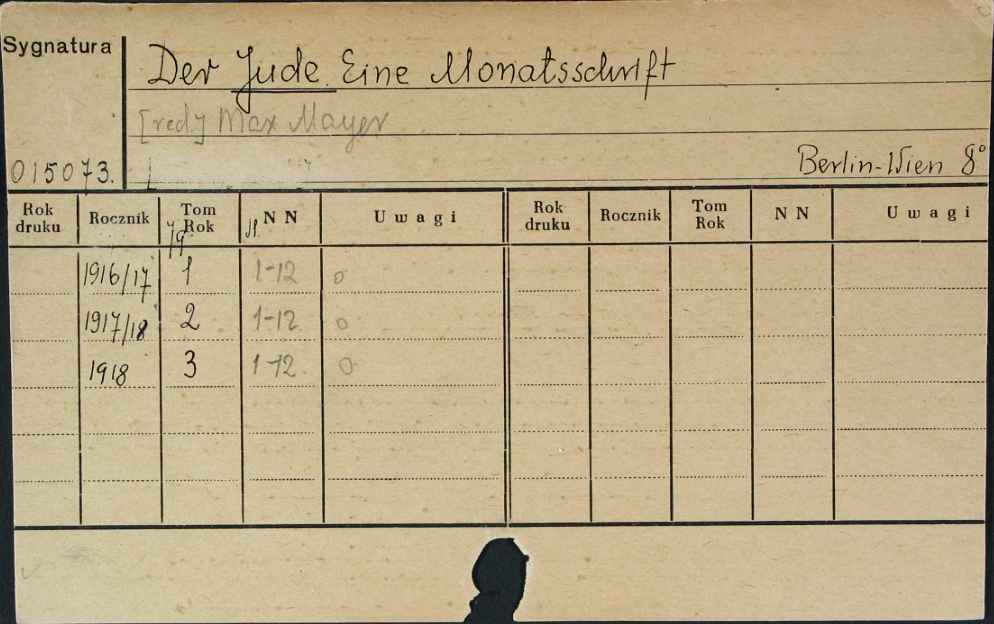 Sygnatura
Der Jude. Eine Monatsschrift
[red.] Max Mayer
015073.
Berlin-Wien 8°
Rok druku Rocznik Tom Rok NN Uwagi Rok druku Rocznik Tom Rok NN Uwagi
Jg. H.
1916/17 1 1-12 o
1917/18 2 1-12 o
1918 3 1-12. o